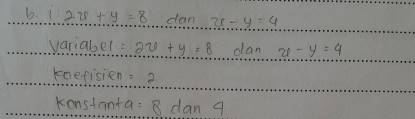 b. i. 2x + y = 8 dan x - y = 4
variabel = 2x + y = 8 dan x - y = 4
koefisien = 2
konstanta = 8 dan 4